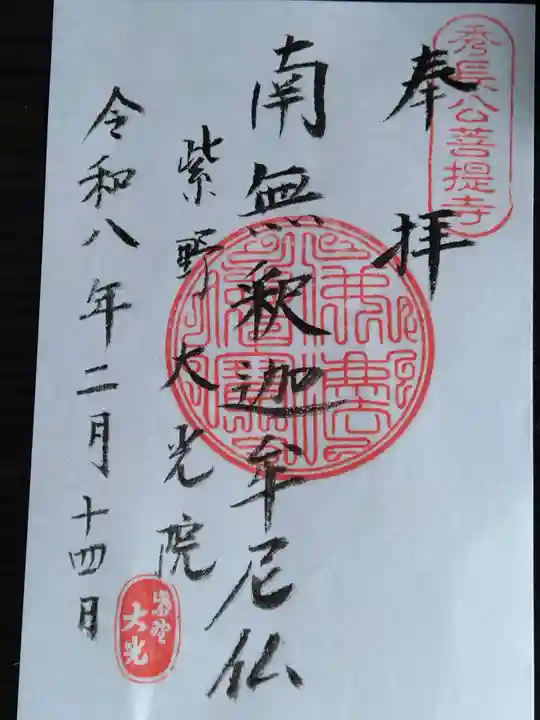 秀長公菩提寺
奉拝
南無釈迦牟尼仏
紫野大光院
令和八年二月十四日
佛法僧寳
紫野
大光